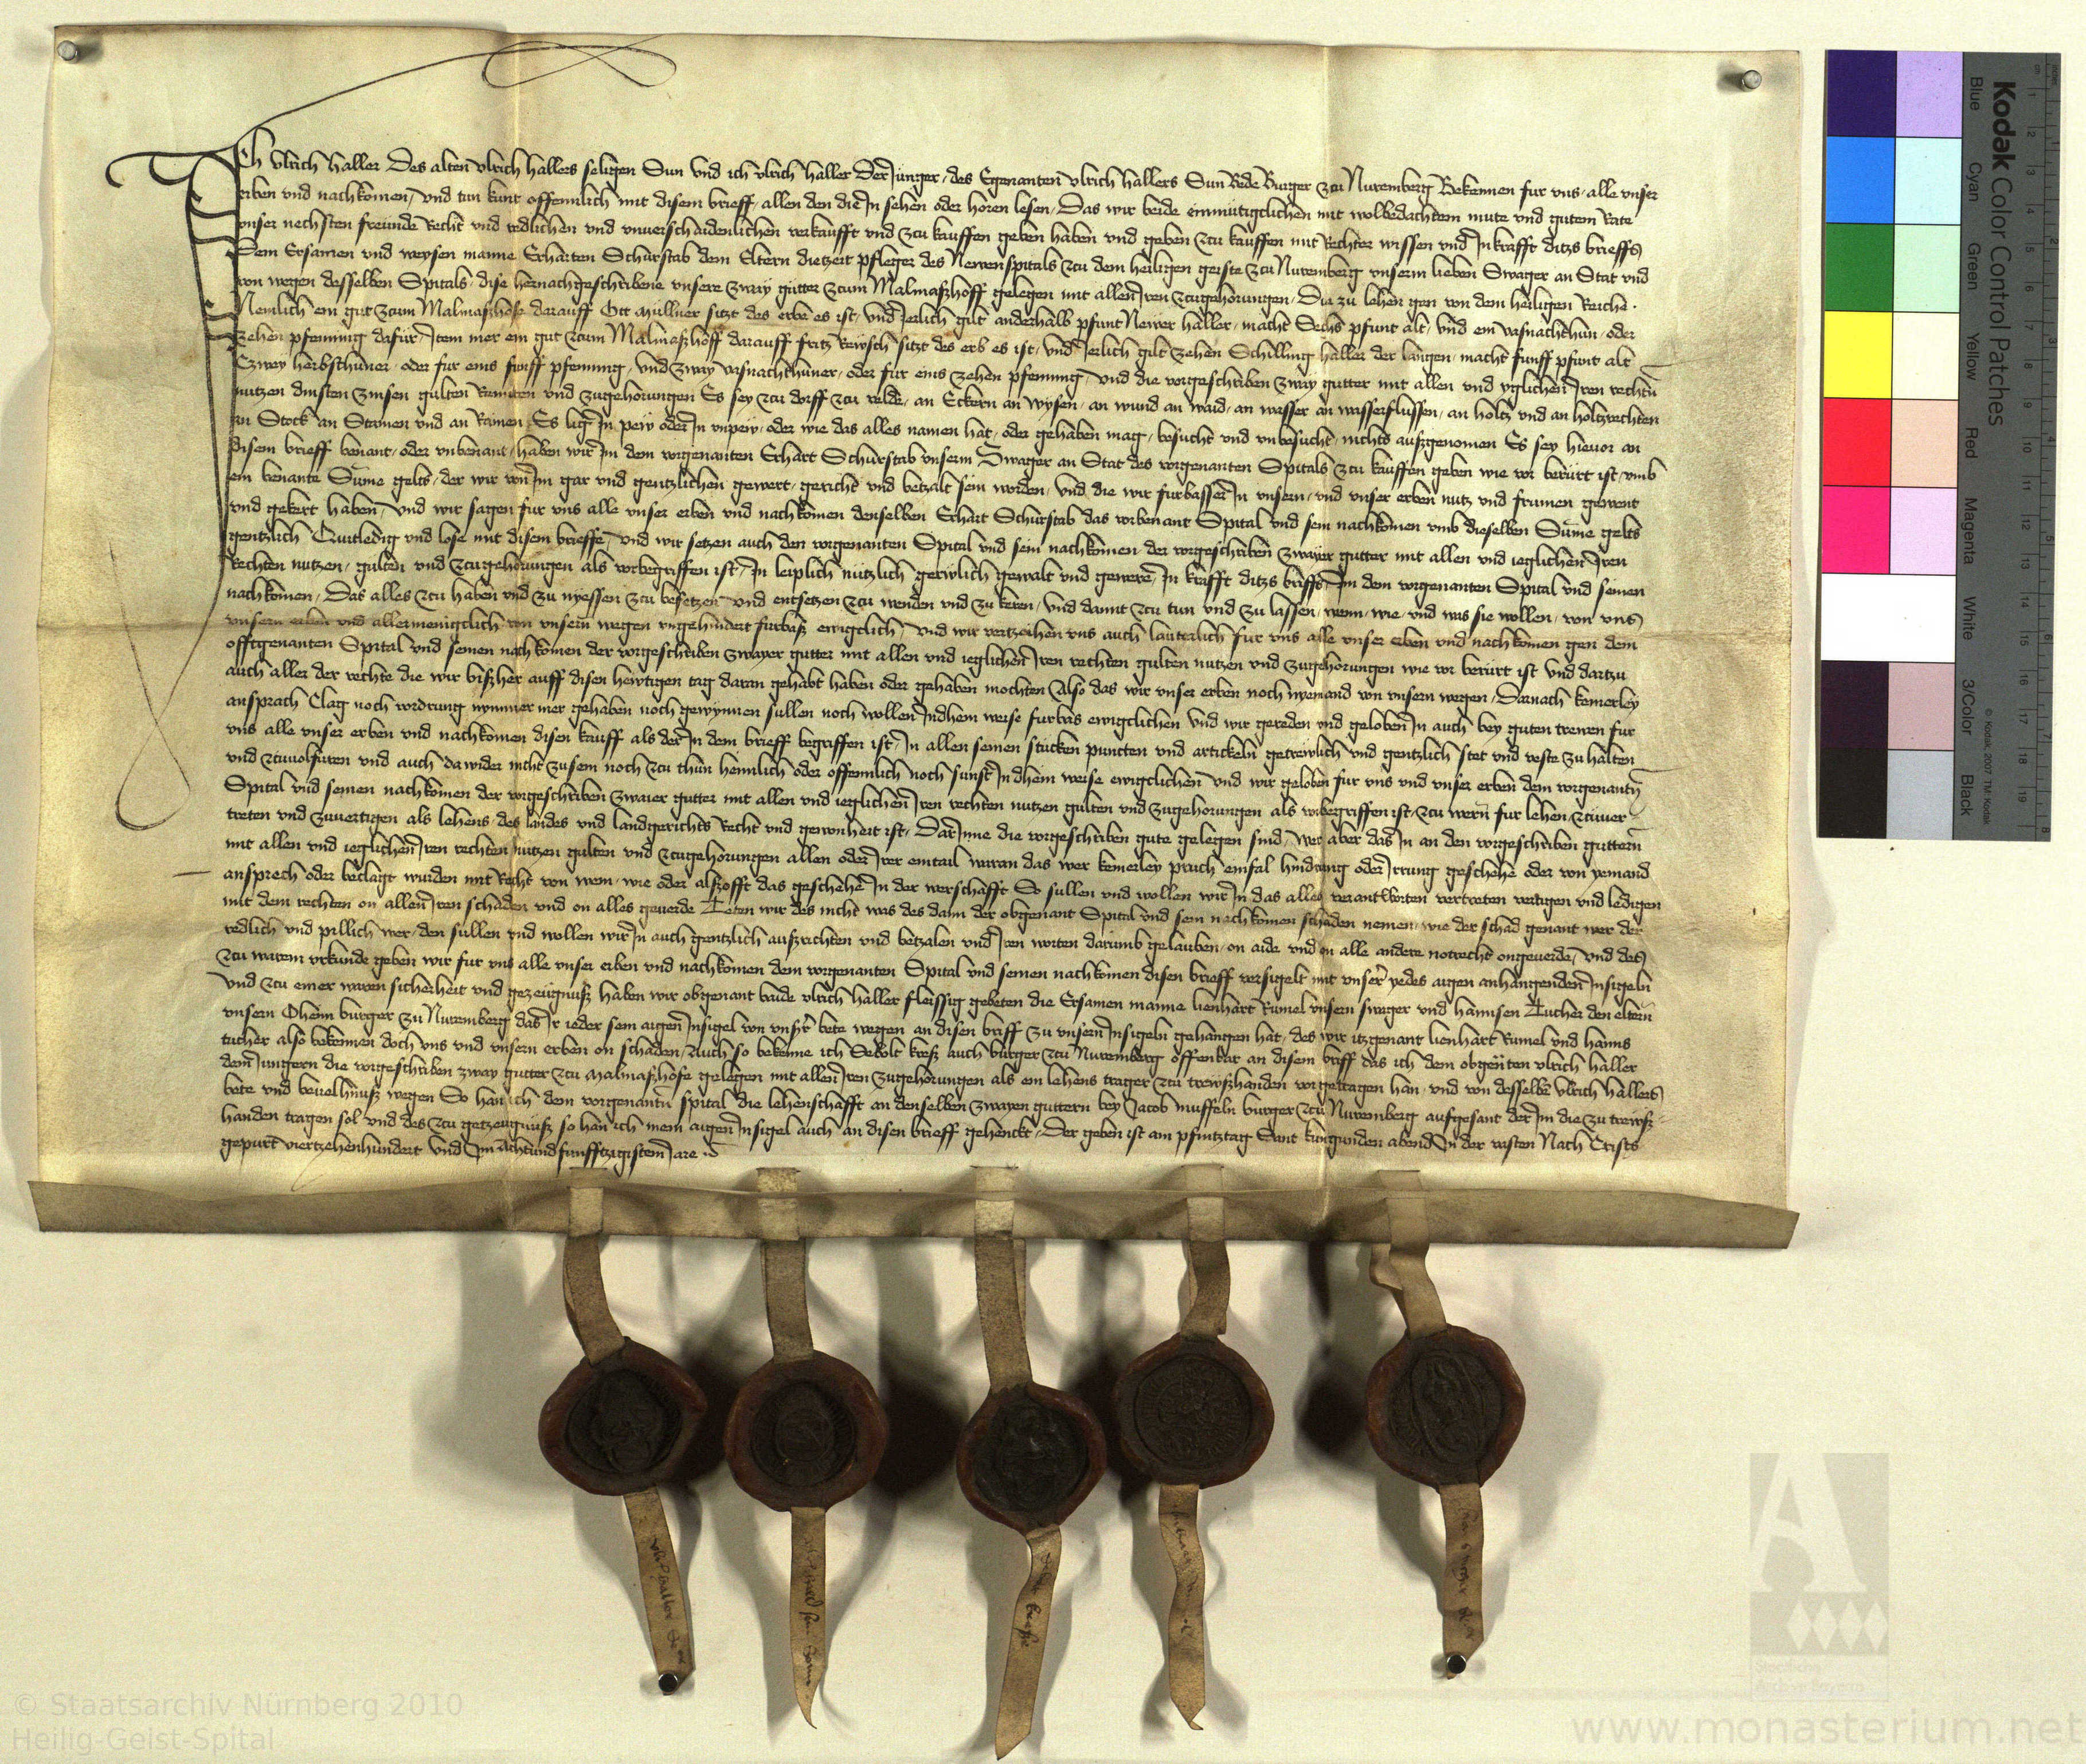 Ich vlrich haller Des alten vlrich hallers seligen Sun Vnd ich vlrich haller Der Junger, des Egenanten vlrich hallers Sun Bede Burger zcu Nuremberg Bekennen fur vns, alle vnser
erben vnd nachkomen, vnd tun kunt offennlich mit disem brieff, allen den die In sehen oder horen lesen, Das wir beide einmutigclichen mit wolbedachtem mute vnd gutem Rate
vnser nechsten freunde Recht vnd redlichen vnd vnuerschaidenlichen verkaufft vnd zcu kauffen geben haben vnd geben zcu kauffen mit Rechter wissen vnd In krafft ditzs brieffs
Dem Ersamen vnd weysen manne Erharten Schurstab dem Eltern dietzeit pfleger des Newenspitals zcu dem heiligen geiste zcu Nuremberg vnserm lieben Swager an Stat vnd
von wegen desselben Spitals, dise hernachgeschribene vnsere zway gutter zcum Malmaßhoff gelegen mit allen Iren zcugehorungen, Die zu lehen gen von dem heiligen Reiche.
Nemlich ein gut zcum Malmaßhofe darauff Ott Mullner sitzt des erbe es ist, vnd Jerlich gilt anderhalb pfunt Newer haller, macht Sechs pfunt alt, vnd ein vasnachthun, oder
zehen pfenning dafur, Item mer ein gut zcum Malmaßhoff darauff fritz Rewsch sitzt des erb es ist, vnd Jerlich gilt zehen Schilling haller der langen, macht funff pfunt alt
Czwey herbsthuner, oder fur eins funff pfenning, vnd zway vasnachthuner, oder fur eins zehen pfenning, vnd die vorgeschriben zway gutter mit allen vnd yglichen Iren rechten
nutzen dinsten zinsen gulten Renten vnd zugehorungen Es sey zcu dorff zcu velde, an Eckern an wysen, an wunn an waid, an wasser an wasserflussen, an holtz vnd an holtzrechten
an Stock an Stamen vnd an Rainen, Es lig In pew oder In vnpew, oder wie das alles namen hat, oder gehaben mag, besucht vnd vnbesucht, nichts außgenomen Es sey hieuor an
disem brieff benant, oder vnbenant, haben wir Im dem vorgenanten Erhart Schurstab vnserm Swager an Stat des vorgenanten Spitals zcu kauffen geben wie vor berurt ist, vmb
ein benante Sume gelts, der wir von Im gar vnd gentzlichen gewert, gericht vnd betzalt sein worden, Vnd die wir furbasser In vnsern, vnd vnser erben nutz vnd frumen gewent
vnd gekert haben, Vnd wir sagen fur vns alle vnser erben vnd nachkomen denselben Erhart Schurstab das vorbenant Spital vnd sein nachkomen vmb dieselben Sume gelts
gentzlich Quitledig vnd lose mit disem brieffe, vnd wir setzen auch den vorgenanten Spital vnd sein nachkomen der vorgeschriben zwayer gutter mit allen vnd ieglichen Iren
Rechten nutzen, gulten vnd zcugehorungen als vorbegriffen ist, In leiplich nutzlich gerwlich gewalt vnd gewere, In krafft ditzs briffs, Im dem vorgenanten Spital vnd seinen
nachkomen, Das alles zcu haben vnd zu nyessen zcu besetzen vnd entsetzen zcu wenden vnd zu keren, Vnd damit zcu tun vnd zu lassen, wenn, wie, vnd was sie wollen, von vns
vnsern erben vnd allermenigclich von vnsern wegen vngehindert furbaß ewigclich, Vnd wir vertzeihen vns auch lauterlich fur vns alle vnser erben vnd nachkomen gen dem
offtgenanten Spital vnd seinen nachkomen der vorgeschriben zwayer gutter mit allen vnd ieglichen Iren rechten gulten nutzen vnd zugehorungen wie vor berurt ist Vnd dartzu
auch aller der rechte die wir bißher auff disen hewtigen tag daran gehabt haben oder gehaben mochten Also das wir vnser erben noch nyemand von vnsern wegen, Darnach keinerley
ansprach Clag noch vordrung nymmer mer gehaben noch gewynnen sullen noch wollen In dhein weise furbas ewigclichen Vnd wir gereden vnd geloben In auch bey guten trewen fur
vns alle vnser erben vnd nachkomen disen kauff als der In dem brieff begriffen ist, In allen seinen stucken puncten vnd artickeln getrewlich vnd gentzlich stet vnd veste zu halten
vnd zcuuolfuren vnd auch dawider nicht zusein noch zcu thun heimlich oder offennlich noch sunst In dhein weise ewigclichen Vnd wir geloben fur vns vnd vnser erben dem vorgenanten
Spital vnd seinen nachkomen der vorgeschriben zwaier gutter mit allen vnd ieglichen Iren rechten nutzen gulten vnd zugehorungen als vorbegriffen ist, zcu wern fur lehen, zcuuer
treten vnd zuuertigen als lehens, des landes vnd landgerichts Recht vnd gewonheit ist, Dar Inne die vorgeschriben gute gelegen sind, Wer aber das In an den vorgeschriben guttern
mit allen vnd ieglichen Iren rechten nutzen gulten vnd zcugehorungen allen oder Irer eintail waran das wer keinerley pruch einfal hindrung oder Irrung geschehe oder von yemand
ansprech oder beclagt wurden mit Recht von wem, wie oder alßofft das geschehe In der werschafft So sullen vnd wollen wir In das alles verantworten vertreten vertigen vnd ledigen
mit dem rechten on allen Iren schaden vnd on alles geuerde Teten wir des nicht was des dann der obgenant Spital vnd sein nachkomen schaden nemen, wie der schad genant wer der
redlich vnd pillich wer, den sullen vnd wollen wir In auch gentzlich außrichten vnd betzalen vnd Iren worten darumb gelauben, on aide vnd on alle andere notrecht ongeuerde, Vnd des
zcu warem vrkunde geben wir fur vns alle vnser erben vnd nachkomen dem vorgenanten Spital vnd seinen nachkomen disen brieff versigelt mit vnser yedes aigen anhangenden Insigeln
Vnd zcu einer waren sicherheit vnd gezeugnuß haben wir obgenant baide vlrich haller fleissig gebeten die Ersamen manne lienhart Rumel vnsern sweger vnd hannsen Tucher den eltern
vnsern Ohem burger zu Nuremberg das Ir ieder sein aigen Insigel von vnser bete wegen an disen briff zu vnsern Insigeln gehangen hat, des wir itzgenant lienhart Rumel vnd hanns
tucher also bekennen doch vns vnd vnsern erben on schaden, Auch so bekenne ich Sebolt kreß auch burger zcu Nuremberg offenbar an disem briff das ich dem obgenten vlrich haller
dem Jungern die vorgeschriben zway gutter zcu Malmaßhofe gelegen mit allen Iren zugehorungen als ein lehens trager zcu trewßhanden vorgetragen han, vnd von desselbe Vlrich hallers
bete vnd beuelhnuß wegen So han ich dem vorgenanten spital die lehenschafft an denselben zwayen guttern bey Jacob muffeln burger zcu Nuremberg aufgesant der Im die zu trewß
handen tragen sol vnd des zcu getzeugnuß so han ich mein aigen Insigel auch an disen brieff gehenckt, Der geben ist am pfintztag Sant kungunden abend In der vasten Nach Crists
gepurt viertzehenhundert vnd Im Achtundfunfftzigistem Jare
Kodak Color Control Patches
Blue Cyan Green Yellow Red Magenta White 3/Color Black
© Kodak, 2007 TM: Kodak
© Staatsarchiv Nürnberg 2010
Heilig-Geist-Spital
www.monasterium.net